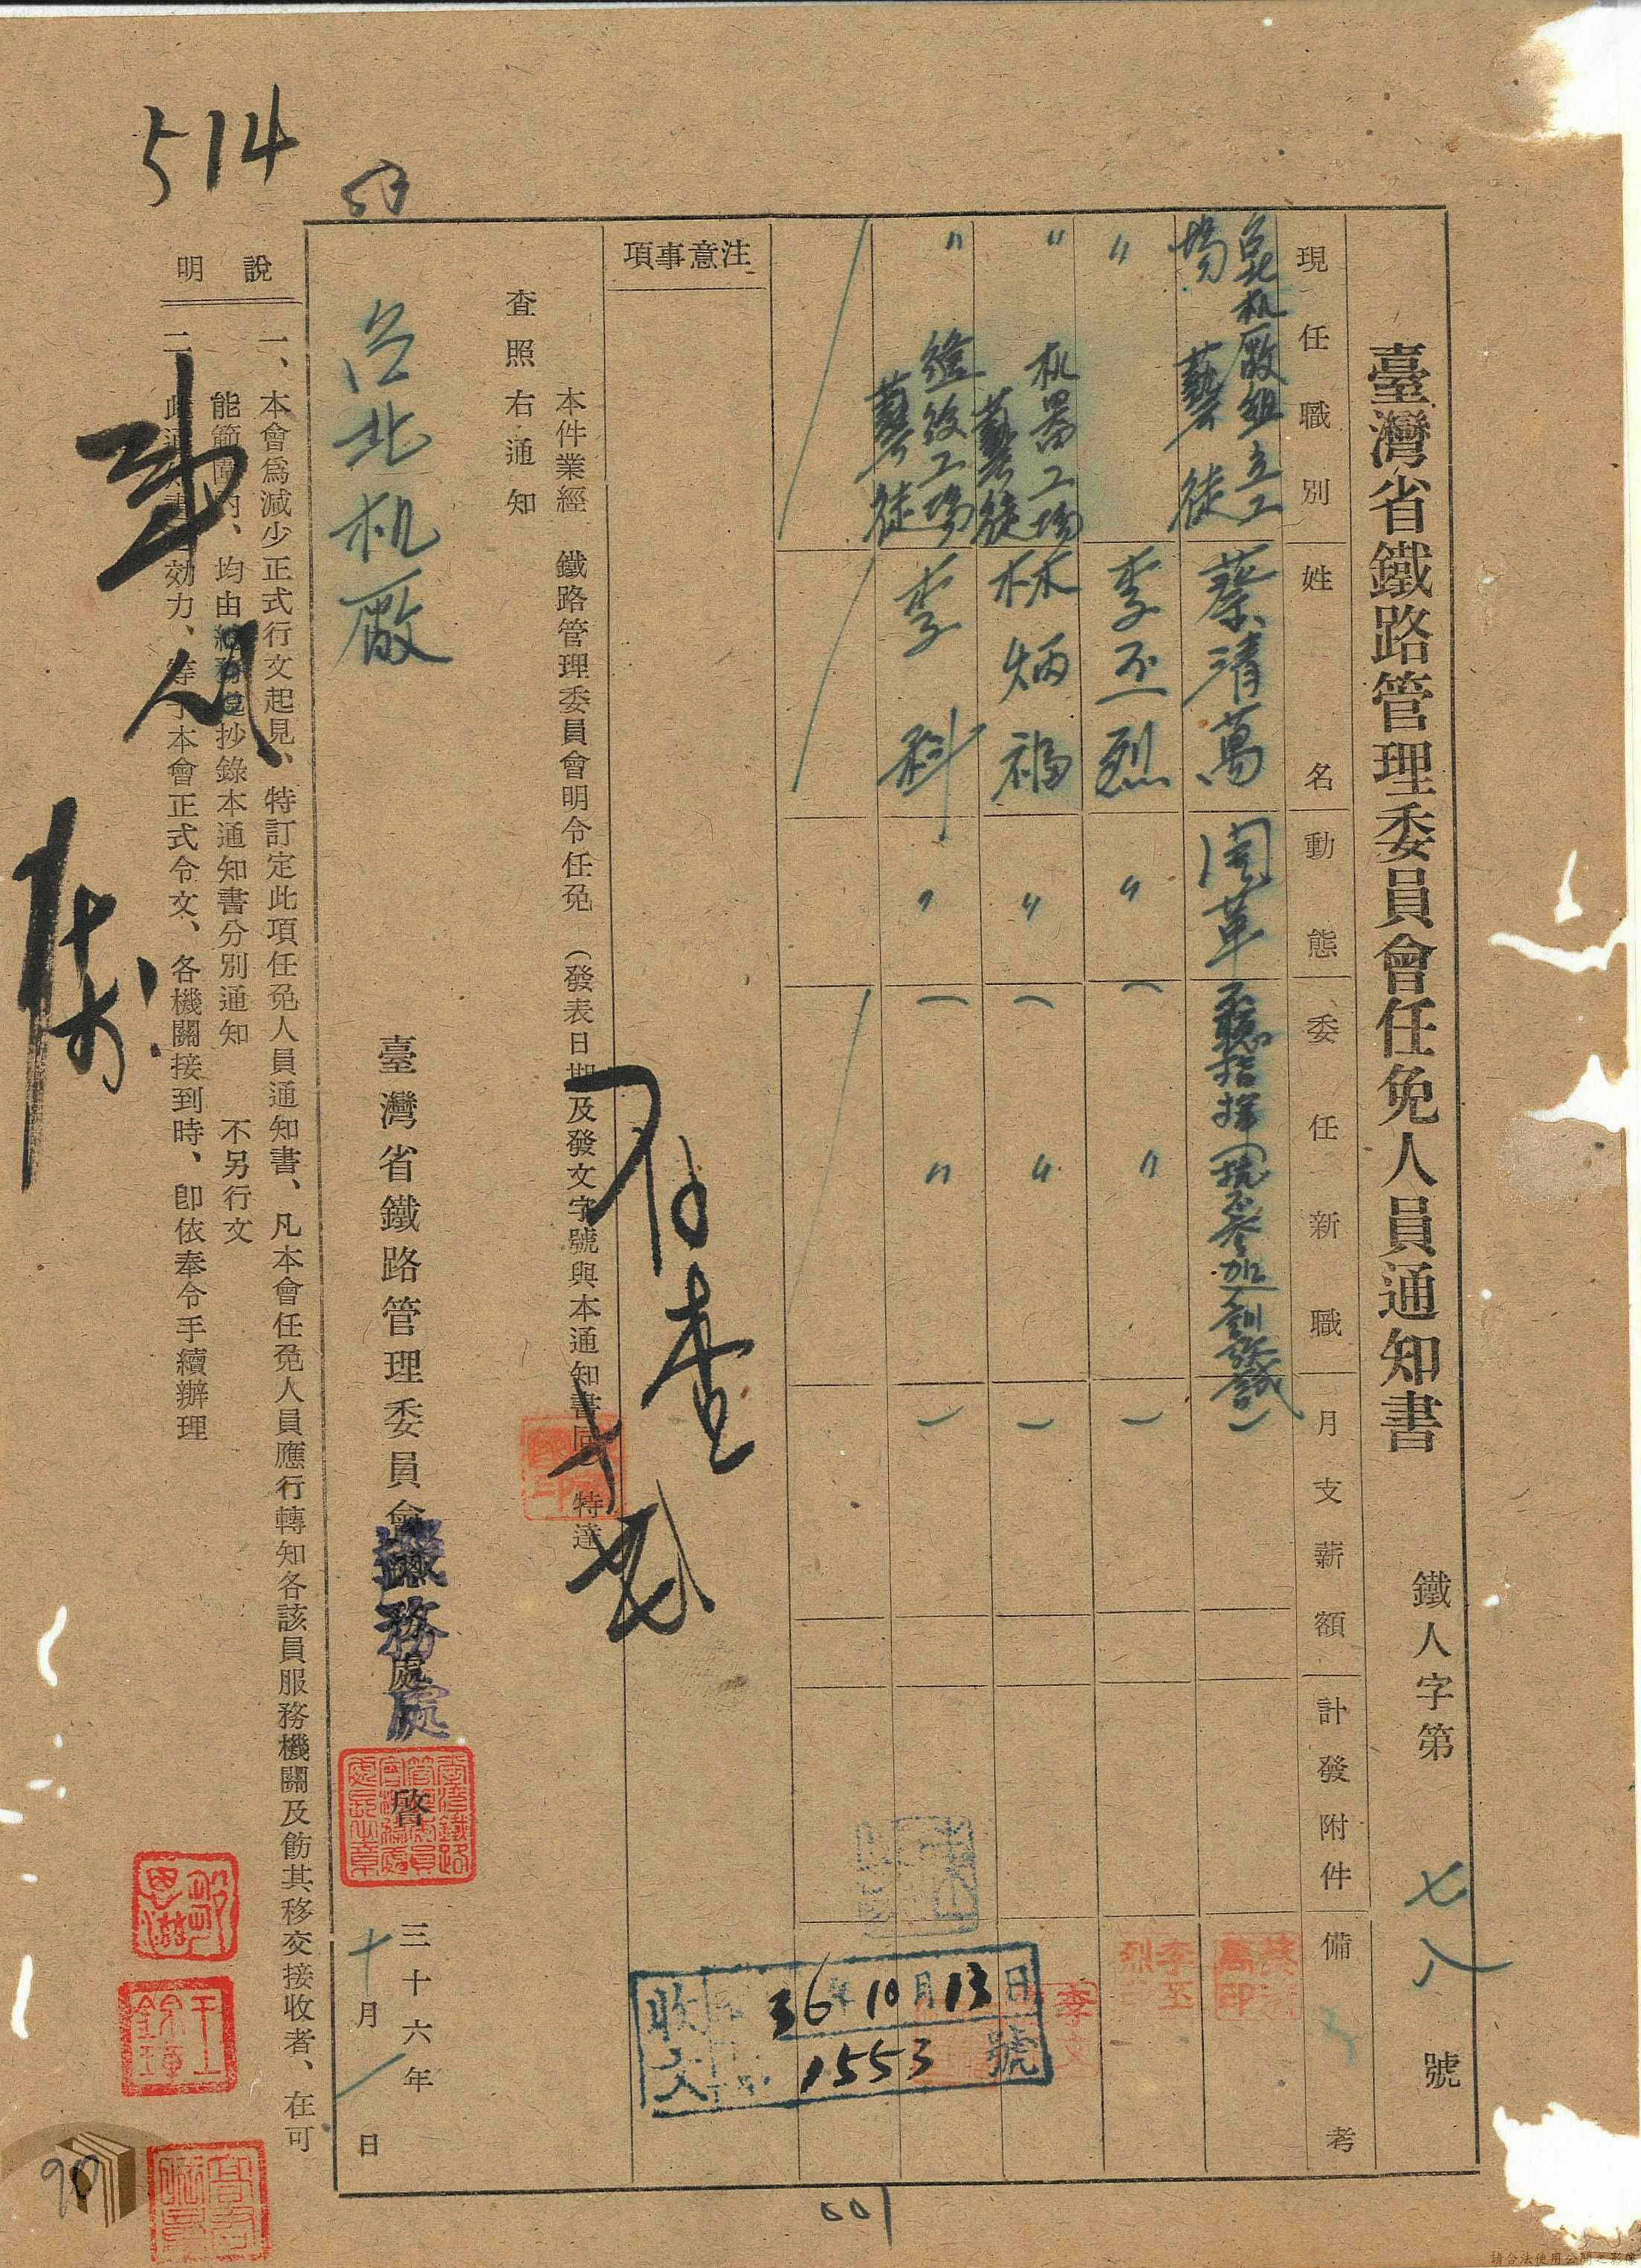 臺灣省鐵路管理委員會任免人員通知書
鐵人字第 七八 號
現任職別
姓名
動態
委任新職
月支薪額
計發附件
備考
台北机廠組立工
場 藝徒
蔡清萬
開革
不聽指揮 抗不參加訓
李丕烈
〃
〃
〃
机器工場
藝徒
林炳福
〃
〃
〃
修工場
藝徒
李科
〃
〃
〃
注意事項
存查
本件業經 鐵路管理委員會明令任免(發表日期及發文字號與本通知書同)特達
查照 右通知
台北机廠
臺灣省鐵路管理委員會
務處
啓
三十六年
十月一日
收文
36年10月13日
1553號
說明
一、本會爲減少正式行文起見、特訂定此項任免人員通知書、凡本會任免人員應行轉知各該員服務機關及飭其移交接收者、在可
能範圍內、均由總務處抄錄本通知書分別通知 不另行文
二、此通知書效力、等於本會正式令文、各機關接到時、卽依奉令手續辦理
514
90
請合法使用公開之影像